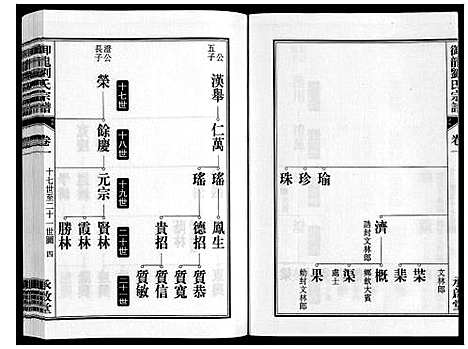 御龍劉氏宗譜
卷一
瑜
珍
珠
文林郎
棐
濟
誥封文林郎
概
鄉飲大賓
渠
處士
果
勅封文林郎
承啟堂
公五子
漢舉
仁萬
瑤
瑤
鳳生
德招
貴招
質恭
質寬
質信
質敏
十七世
十八世
十九世
二十世
二十一世
澄公長子
榮
餘慶
元宗
賢林
霞林
勝林
御龍劉氏宗譜
卷一
十七世至二十一世圖
四
承啟堂